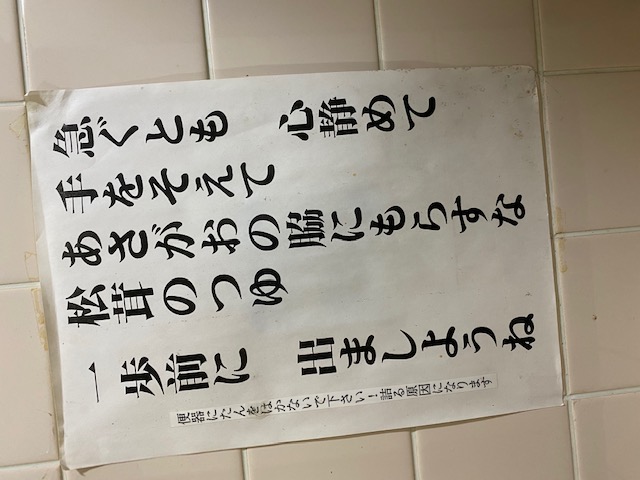 急ぐとも　心静めて
手をそえて
あさがおの脇にもらすな
松茸のつゆ
一歩前に　出ましようね
便器にたんをはかないで下さい！詰る原因になります